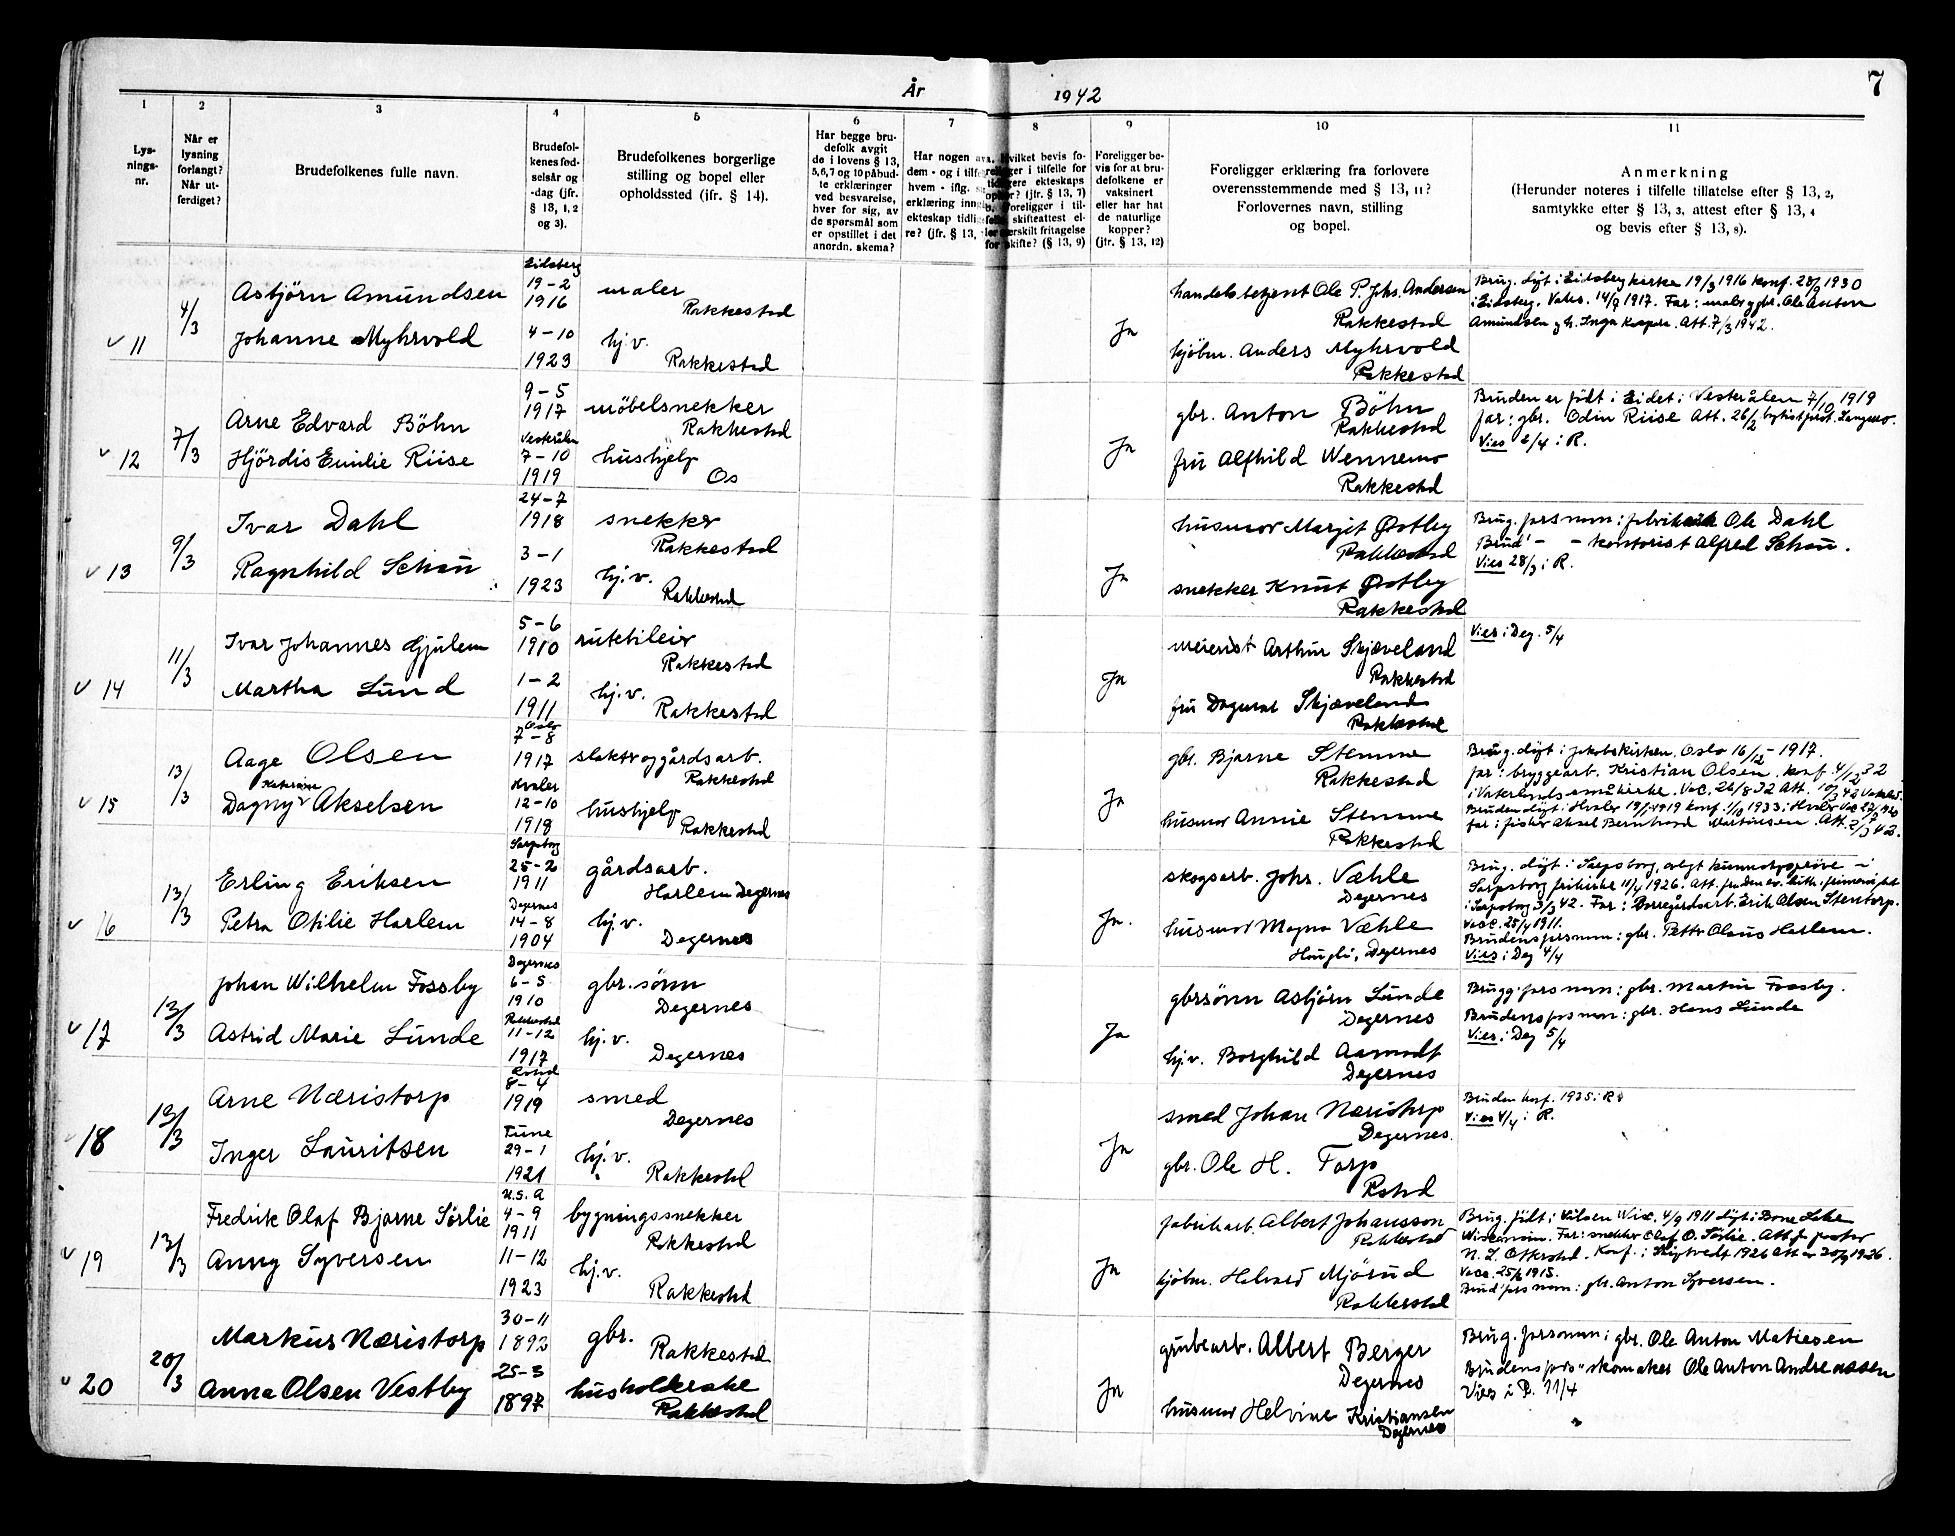 7
År 1942
1 2 3 4 5 6 7 8 9 10 11
Lys-
nings-
nr.
Når er
lysning
forlangt?
Når ut-
ferdiget?
Brudefolkenes fulle navn.
Brudefol-
kenes fød-
selsår og
-dag (jfr.
§ 13, 1, 2
og 3).
Brudefolkenes borgerlige
stilling og bopel eller
opholdssted (jfr. § 14).
Har begge bru-
defolk avgit
de i lovens § 13,
5, 6, 7 og 10 påbud-
te erklæringer
ved besvarelse,
hver for sig, av
de spørsmål som
er opstillet i det
anordn. skema?
Foreligger be-
vis for at bru-
defolkene er
vaksinert
eller har hat
de naturlige
kopper?
(jfr. § 13, 12)
Foreligger erklæring fra forlovere
overensstemmende med § 13, 11?
Forlovernes navn, stilling
og bopel.
Anmerkning
(Herunder noteres i tilfelle tillatelse efter § 13, 2,
samtykke efter § 13, 3, attest efter § 13, 4
og bevis efter § 13, 8).
v 11
4/3
Asbjörn Amundsen
Johanne Myhrvold
Eidsberg
19-2
1916
4-10
1923
maler
Rakkestad
hj.v.
Rakkestad
Ja
handelsbetjent Ole P. Johs. Andersen
Rakkestad
kjöbm. Anders Myhrvold
Rakkestad
Brug. döpt i Eidsberg kirke 19/3 1916 konf. 28/9 1930
i Eidsberg. Vaks. 14/9 1917. Far: maler gbr. Ole Anton
Amundsen g.h. Inga Kaspers. Att. 7/3 1942.
v 12
7/3
Arne Edvard Böhn
Hjördis Emilie Riise
9-5
1917
Vesterålen
7-10
1919
möbelsnekker
Rakkestad
hushjelp
Os
Ja
gbr. Anton Böhn
Rakkestad
fru Alfhild Wennemo
Rakkestad
Bruden er födt i Eidet i Vesterålen 7/10 1919
far: gbr. Odin Riise Att. 26/2
Vies 2/4 i R.
v 13
9/3
Ivar Dahl
Ragnhild Schou
24-7
1918
3-1
1923
snekker
Rakkestad
hj.v.
Rakkestad
Ja
husmor Margit Østby
Rakkestad
snekker Knut Østby
Rakkestad
Brug. fars navn: Ole Dahl
Brud' - - kontorist Alfred Schou.
Vies 28/3 i R.
v 14
11/3
Ivar Johannes Gjulem
Martha Lund
5-6
1910
1-2
1911
rutebileier
Rakkestad
hj.v.
Rakkestad
Ja
meierist Arthur Skjæveland
Rakkestad
fru Dagmar Skjæveland
Rakkestad
Vies i Deg. 5/4
v 15
13/3
Aage Olsen
Katarina
Dagny Akselsen
Oslo
7-8
1917
Hvaler
12-10
1918
slakter og gårdsarb.
Rakkestad
hushjelp
Rakkestad
Ja
gbr. Bjarne Stemme
Rakkestad
husmor Annie Stemme
Rakkestad
Brug. döpt i Jakobskirken, Oslo 16/12-1917.
far: bryggearb. Kristian Olsen. konf. 4/12 32
i Vaterlands småkirke. Vac. 26/8 32 Att. 10/3 42
Bruden döpt i Hvaler 19/1 1919 konf. 1/10 1933 i Hvaler
far: fisker Aksel Bernhard Martinsen. Att. 2/3 42.
v 16
13/3
Erling Eriksen
Petra Otilie Harlem
Sarpsborg
25-2
1911
Degernes
14-8
1904
gårdsarb.
Harlem Degernes
hj.v.
Degernes
Ja.
skogsarb. Johs. Væhle
Degernes
husmor Magna Væhle
Haugli, Degernes
Brug. döpt i Sarpsborg, avlagt kunnskapspröve i
Sarpsborg frikirke 11/4 1926. Att.
i Sarpsborg 3/3 42. Far: Borregårdsarb. Erik Olsen Stentorp.
Vacc. 25/4 1911.
Brudens fars navn: gbr. Petter Olaus Harlem.
Vies i Deg 4/4
v 17
13/3
Johan Wilhelm Fossby
Astrid Marie Lunde
Degernes
6-5
1910
Rakkestad
11-12
1917
gbr. sönn
Degernes
hj.v.
Degernes
Ja
gbrsönn Asbjörn Lunde
Degernes
hj.v. Borghild Aamodt
Degernes
Brugg. fars navn: gbr. Martin Fossby.
Brudens fars navn: gbr. Hans Lunde
Vies i Deg 5/4
18
13/3
Arne Næristorp
Inger Lauritsen
8-4
1919
Tune
29-1
1921
smed
Degernes
hj.v.
Rakkestad
Ja
smed Johan Næristorp
Degernes.
gbr. Ole H. Torp
Rstad
Bruden konf. 1935 i R.
Vies 4/4 i R.
v 19
13/3
Fredrik Olaf Bjarne Sörlie
Anny Syversen
U.S.A
4-9
1911
11-12
1923
bygningssnekker
Rakkestad
hj.v.
Rakkestad
Ja
fabrikarb. Albert Johansson
Rakkestad
kjöbm. Halvard Mjörud
Rakkestad
Brug. födt i Vilsen Wis. 4/9 1911 döpt i Bone Lake
Wisconsin. Far: snekker Olaf O. Sörlie. Att. f. pastor
N. L. Otterstad. Konf. i Skiptvedt 1926 att av 30/9 1926.
Vacc. 25/6 1915.
Brud' fars navn: gbr. Anton Syversen.
v 20
20/3
Markus Næristorp
Anna Olsen Vestby
30-11
1892
25-3
1897
gbr.
Rakkestad
husholderske
Rakkestad
Ja
grubearb. Albert Berger
Degernes
husmor Helvine Kristiansen
Degernes
Brug. fars navn: gbr. Ole Anton Matiesen
Brudens fars " skomaker Ole Anton Andreassen
Vies i R. 11/4